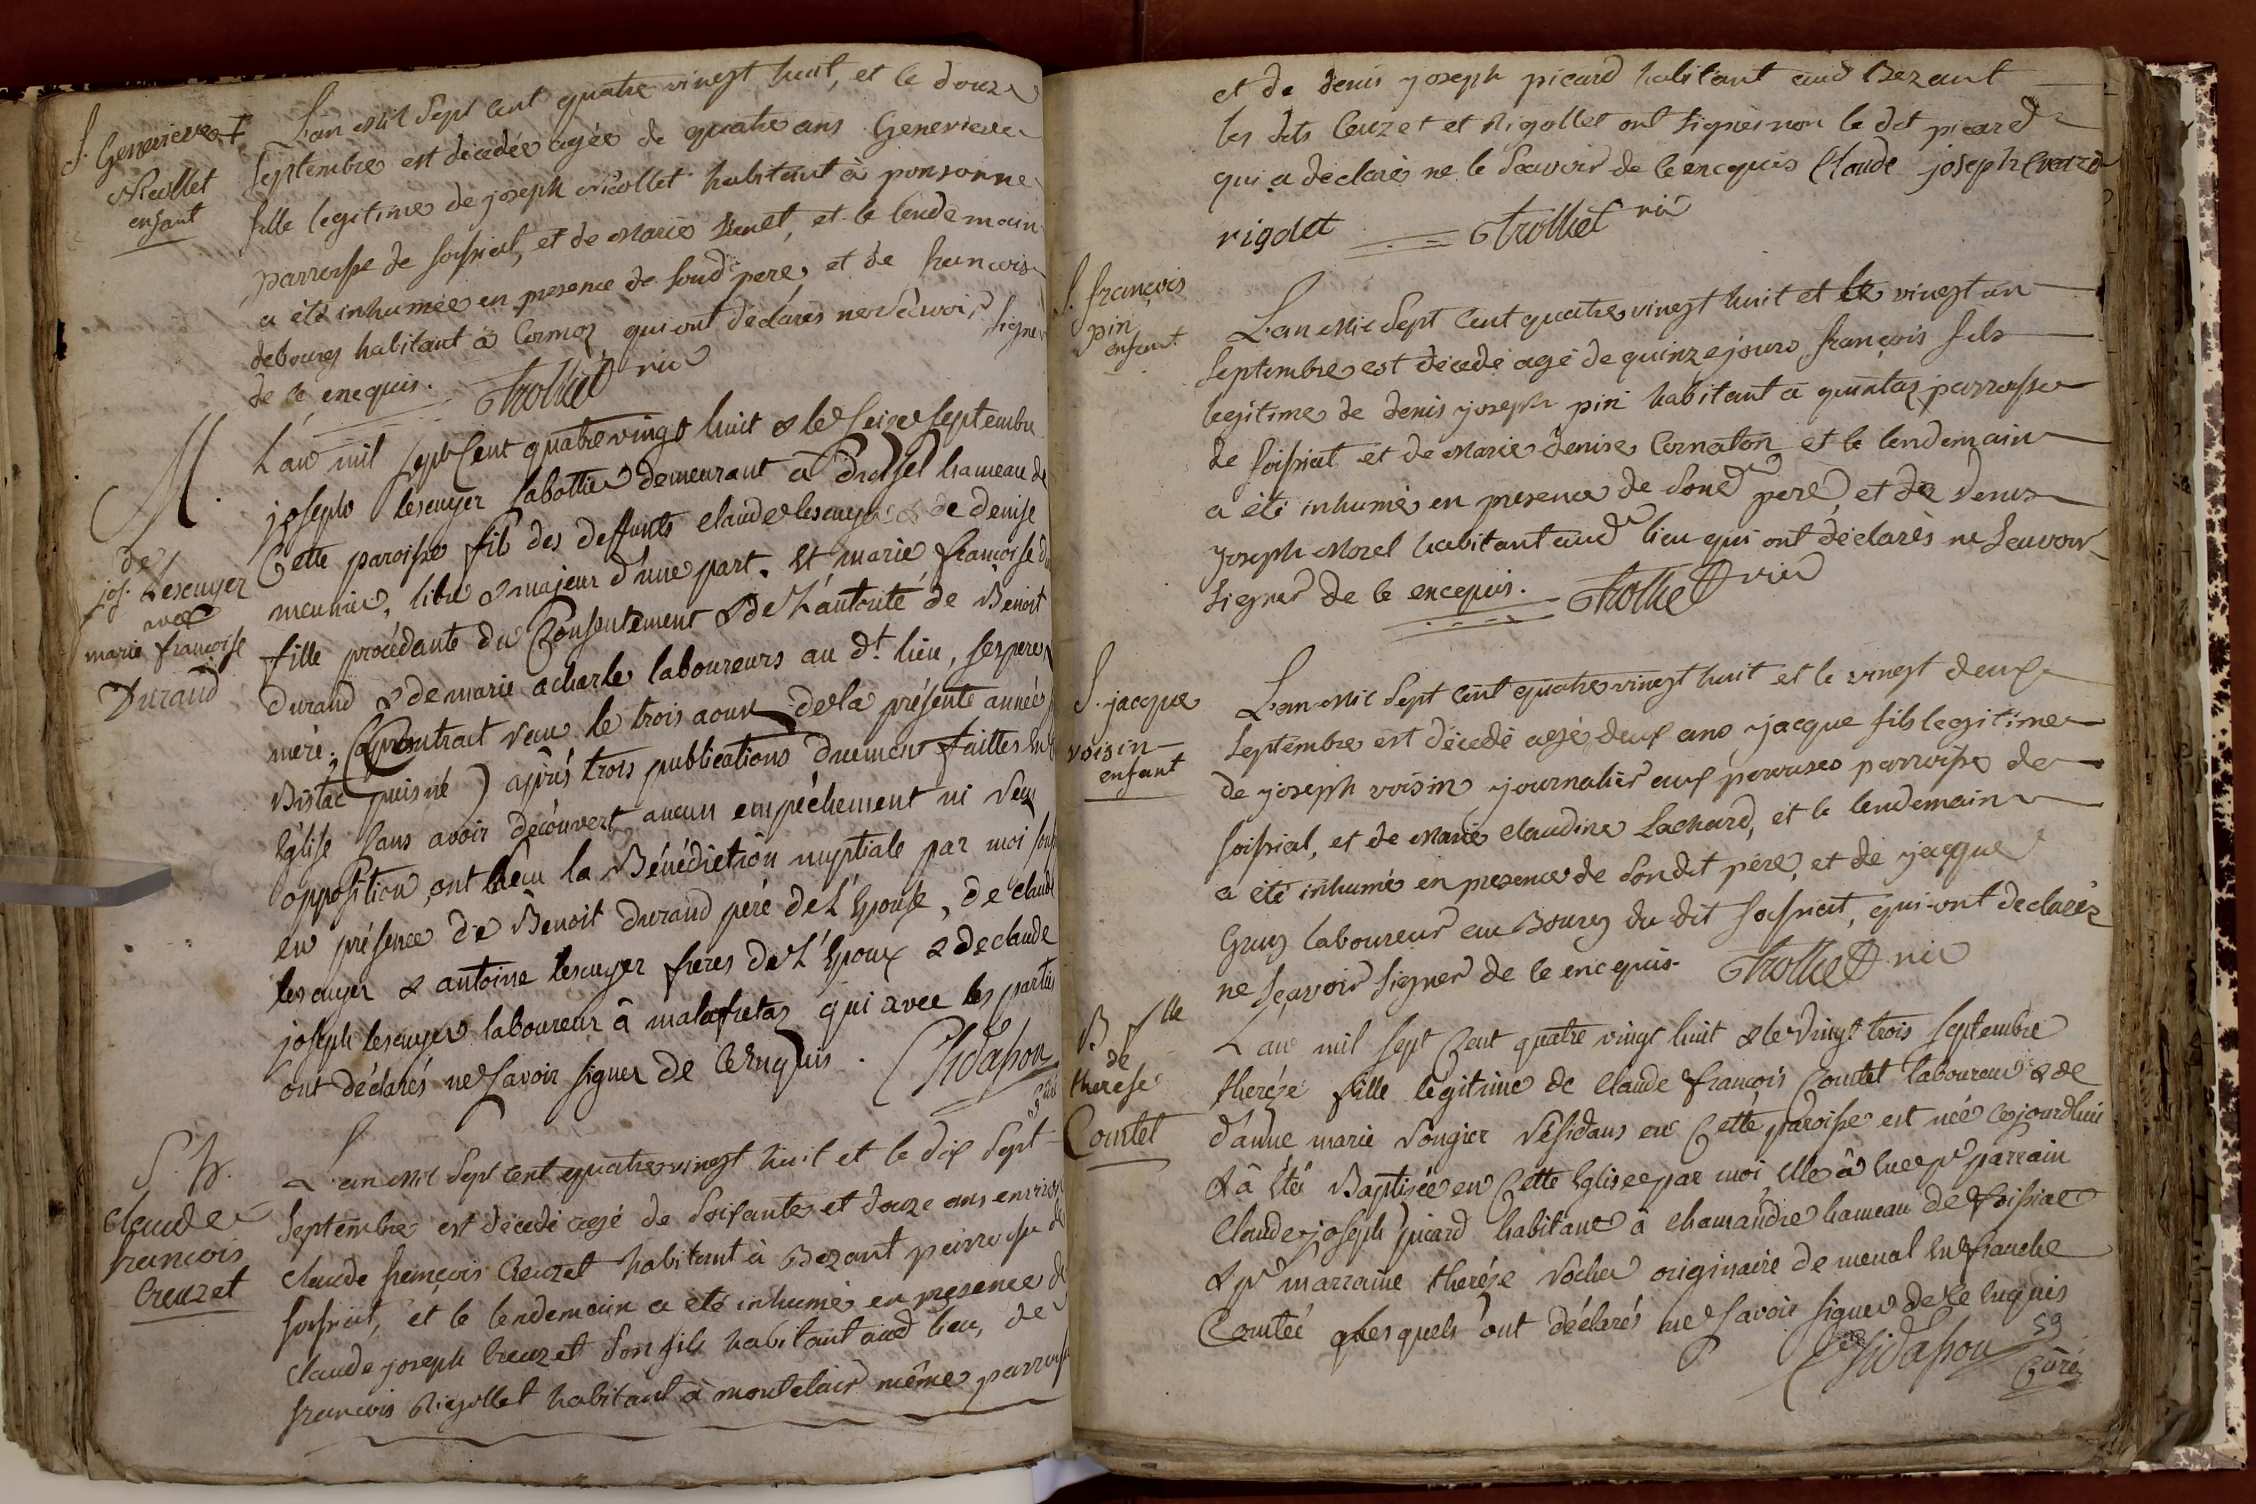 S. Genevieve
Nicollet
enfant
L'an mil sept cent quatre vingt huit, et le douze
septembre est décédée agée de quatre ans Genevieve
fille legitime de joseph nicollet habitant à ponsonne
parroisse de foissiat, et de marie Benet, et le lendemain
a été inhumée en presence de soud. pere, et de francois
debourg habitant à Cormoz, qui ont déclarés ne sçavoir signer
de ce encquis. Trolliet vic
M.
de
jos. Lescuyer
avec
marie françoise
Durand
L'an mil sept Cent quatre vingt huit & le seize septembre
joseph lescuyer sabottier demeurant à hameau de
Cette paroisse fils des deffunts claude lescuyer & de denise
meunier, libre & majeur d'une part. Et marie françoise
fille procédante du Consentement & de L'autorité de Benoit
durand & de marie acharle laboureurs au dt. lieu, ses pere
mere; (Contract reçu le trois aoust de la présente année
Bistac puisné) après trois publications duement faittes en
Eglise sans avoir découvert aucun empéchement ni
opposition, ont reçu la Bénédiction nuptiale par moi
en présence de Benoit durand pére de L'Epouse, de claude
lescuyer & antoine lescuyer freres de L'Epoux & de claude
joseph lescuyer laboureur à malafretaz qui avec les parties
ont déclarés ne savoir signer de ce Enquis. Chidasson
S. h.
claude
francois
Creuzet
L'an mil sept cent quatre vingt huit et le dix sept
septembre est décédé agé de soixante et douze ans environ
claude françois Creuzet habitant à Bezant parroisse de
foissiat, et le lendemain a été inhumé en presence de
claude joseph Creuzet son fils habitant aud lieu, de
francois Rigollet habitant à montclair même parroisse
et de denis joseph picard habitant aud Bezant
les dits Creuzet et Rigollet ont signés non le dit picard
qui a déclaré ne le sçavoir de ce encquis Claude joseph Creuzet
rigolet Trolliet vic
S. françois
pin
enfant
L'an mil sept cent quatre vingt huit et le vingt un
septembre est décédé agé de quinze jours françois fils
legitime de denis joseph pin habitant à quintaz parroisse
de foissiat et de marie denise Cornaton et le lendemain
a été inhumé en presence de soud. pere, et de denis
joseph morel habitant aud lieu qui ont déclarés ne sçavoir
signer de ce encquis. Trolliet vic
S. jacque
voisin
enfant
L'an mil sept cent quatre vingt huit et le vingt deux
septembre est décédé agé deux ans jacque fils legitime
de joseph voisin journalier aux parroisse de
foissiat, et de marie claudine Lachard, et le lendemain
a été inhumé en presence de son dit pere, et de jacque
Gruy laboureur au Bourg du dit foissiat, qui ont déclarés
ne sçavoir signer de ce encquis. Trolliet vic
B fille
de
therese
Comtet
L'an mil sept Cent quatre vingt huit & le vingt trois septembre
therése fille légitime de claude françois Comtet laboureur & de
d'anne marie Rongier résidans en Cette paroisse est née cejourdhuis
& à été Baptisée en Cette Eglise par moi, elle à eue pr parrain
claude joseph picard habitant à chamandré hameau de foissiat
& pr marraine therése vocher originaire de en franche
Comtée lesquels ont déclarés ne savoir signer de ce Enquis
Chidasson
Curé
59